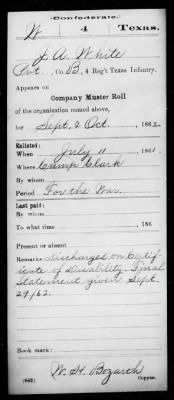 (Confederate.)
W 4 Texas.
J. A. White
Pvt., Co. B, 4 Reg't Texas Infantry.
Appears on
Company Muster Roll
of the organization named above,
for Sept. & Oct., 1862.
Enlisted:
When July 11, 1861.
Where Camp Clark
By whom
Period For the War.
Last paid:
By whom
To what time , 186 .
Present or absent
Remarks: Discharged on Certif
icate of Disability. Final
Statement given Sept.
29/62.
Book mark:
W. H. Bozarth
(642) Copyist.